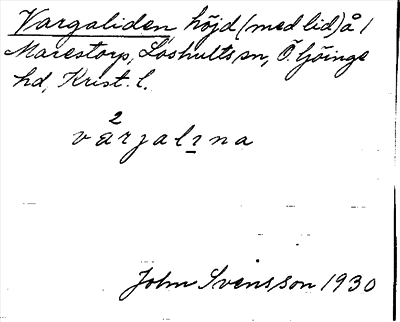 Vargaliden höjd (med lid) å /
Marestorp, Loshults sn, Ö. Göinge
hd, Krist. l.
2
varjalına
John Svensson 1930